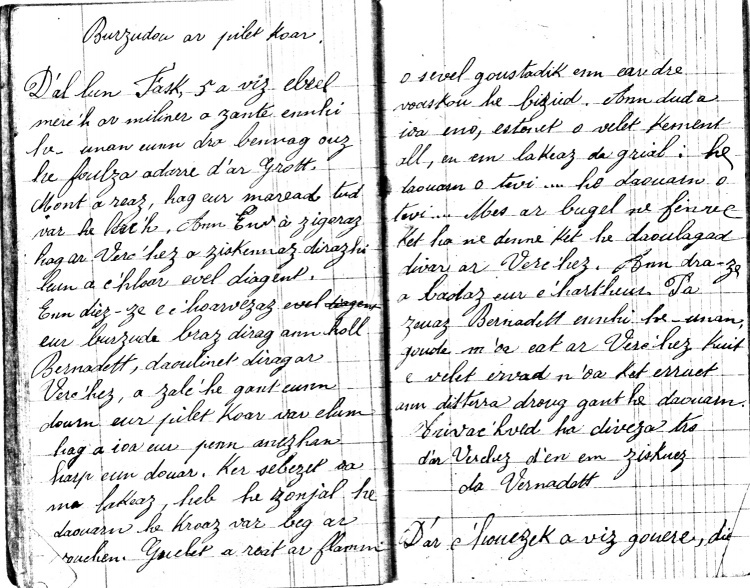 Burzudou ar pilet koar.
D'al lun Fask, 5 a viz ebrel
merc'h ar miliner a zante ennhi
he-unan eunn dra bennag ouz
he foulza adarre d'ar Grott.
Mont a reaz, hag eur maread tud
var he lerc'h. Ann Env a zigoraz
hag ar Verc'hez a ziskennaz dirazhi
leun a c'hloar evel diagent.
Enn deiz-ze e c'hoarvezaz evel diagent
eur burzude braz dirag ann holl
Bernadett, daoulinet dirag ar
Verc'hez, a zalc'he gant eunn
dourn eur pilet koar var elum
hag a ioa eur penn anezhan
harp eun douar. Ker sebezet oa
ma lakeaz, heb he zonjal he
daouarn he kroaz var beg ar
rouchen. Guelet a reat ar flamm
o sevel goustadik enn eur dre
voaskou he biziad. Ann dud a
ioa eno, estonet o velet kement
all, en em lakeaz da grial: he
daouarn o tevi .... he daouarn o
tevi.... Mes ar bugel ne finvec
ket ha ne denne ket he daoulagad
divar ar Verc'hez. Ann dra-ze
a badaz eur c'hartheur. Pa
zeuaz Bernadett ennhi he-unan,
goude m'oa eat ar Verc'hez kuit
e velet ervad n'oa ket erruet
ann disterra droug gant he daouarn.
Trivac'hved ha diveza tro
d'ar Verc'hez d'en em ziskuez
da Vernadett
D'ar c'houezek a viz gouere, die